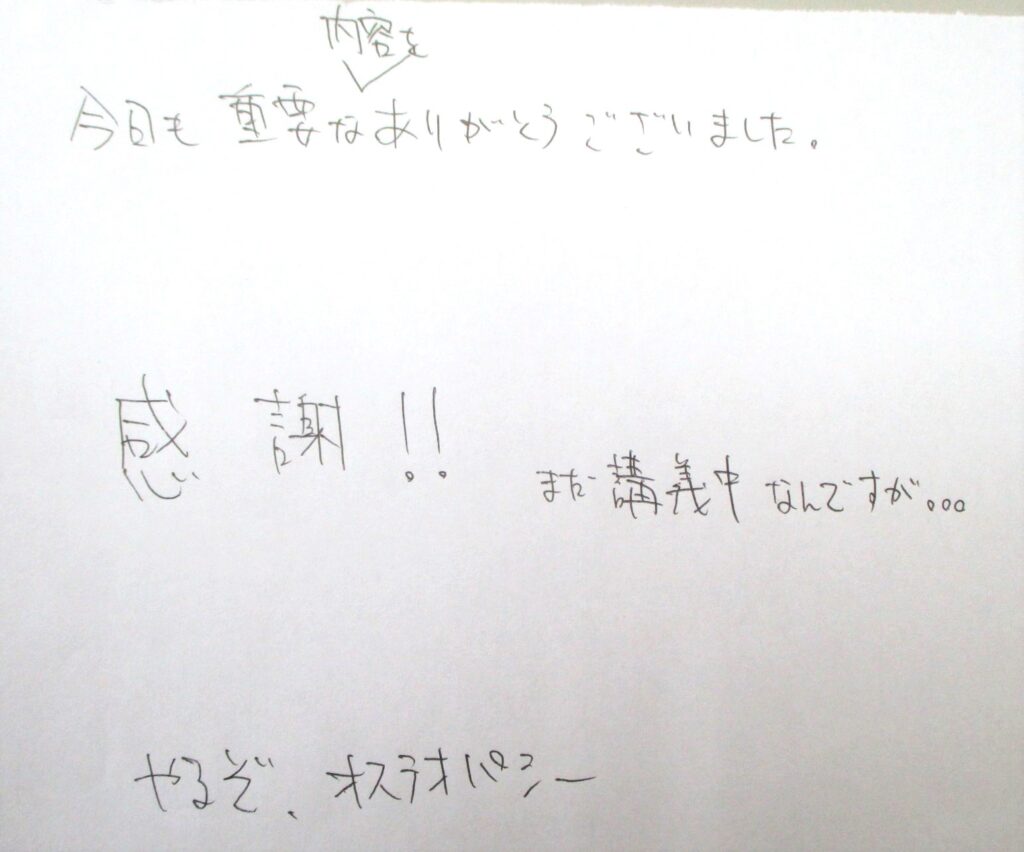 内容を
今日も重要なありがとうございました。
感謝!!
まだ講義中なんですが...
やるぞ、オステオパシー